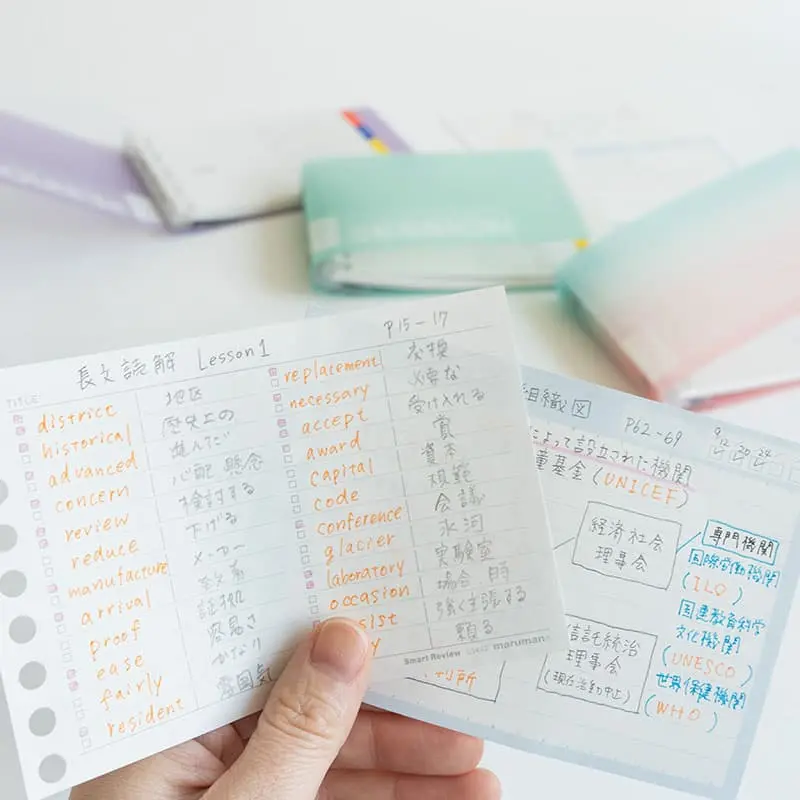 TITLE 長文読解 Lesson1 P15-17
district 地区
historical 歴史上の
advanced 進んだ
concern 心配 懸念
review 検討する
reduce 下げる
manufacture メーカー
arrival 到着
proof 証拠
ease 容易さ
fairly かなり
resident 雰囲気
replacement 交換
necessary 必要な
accept 受け入れる
award 賞
capital 資本
code 規範
conference 会議
glacier 氷河
laboratory 実験室
occasion 場合
sist 強く主張する
y 頼る
Smart Review maruman
組織図 P62-69 9/12 20 24
よって設立された機関
童基金(UNICEF)
経済社会
理事会
専門機関
国際労働機関
(ILO)
国連教育科学
文化機関
(UNESCO)
世界保健機関
(WHO)
信託統治
理事会
(現在活動中止)
判所